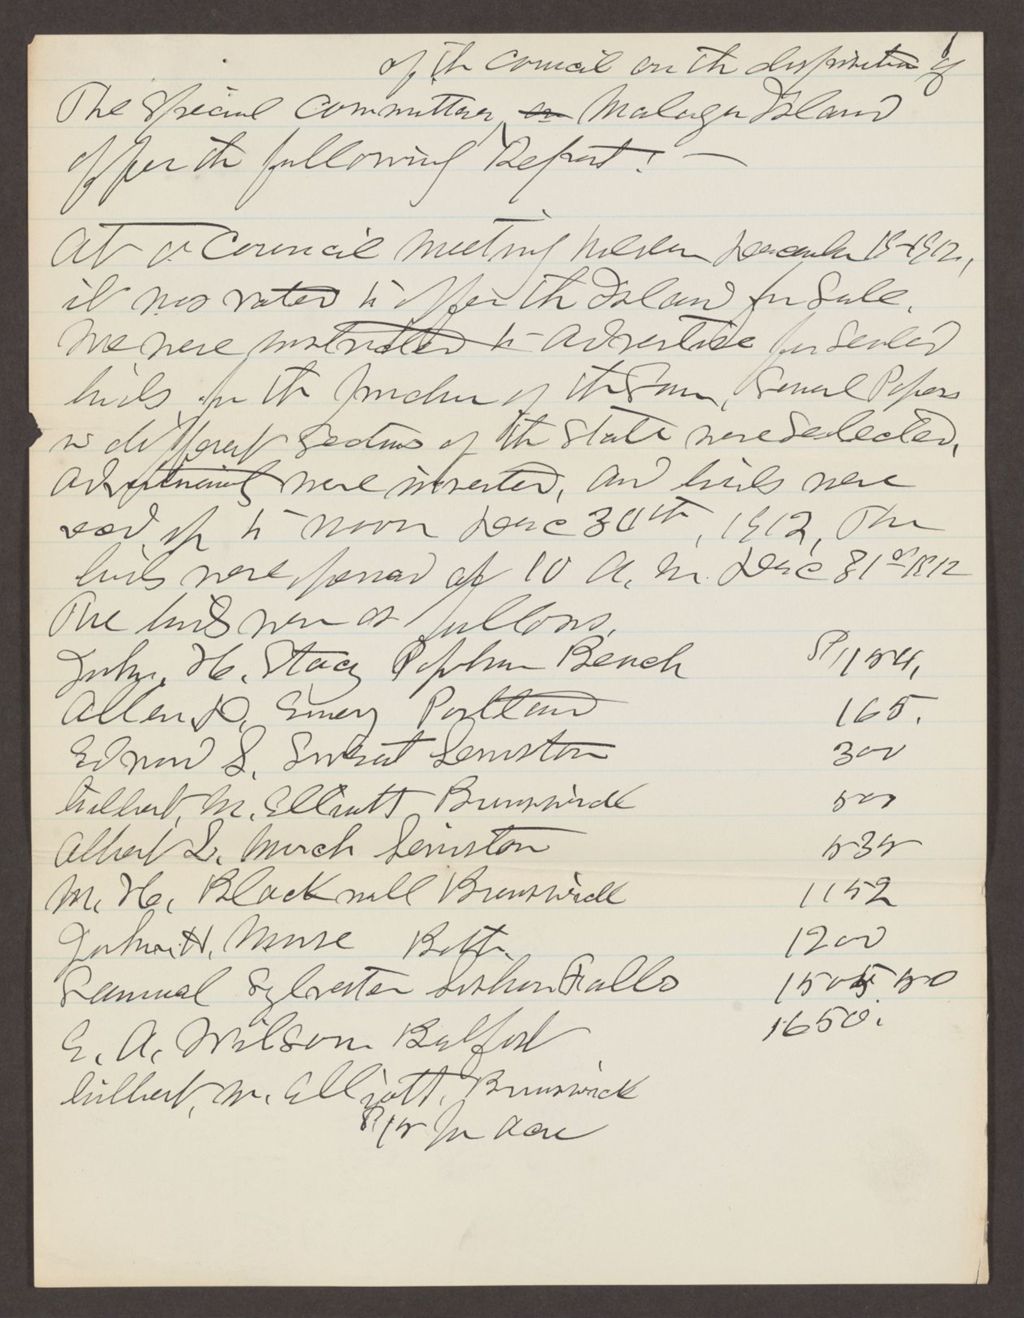 1
of the Council on the disposition of
The Special Committee, on Malaga Island
offer the following Report: —
At a Council Meeting holden December 18-1912,
it was voted to offer the Island for Sale.
We were instructed to advertise for Sealed
bids for the purchase of the Same, Several Papers
in different Sections of the State were Selected,
advertising were inserted, and bids were
recd. up to noon Dec 30th, 1912, The
bids were opened at 10 A. M. Dec 31st 1912
The bids were as follows.
John, H. Stacy Popham Beach $154.
Allen D. Emery Portland 165.
Edward S. Sweat Lewiston 300
Gilbert, M. Elliott, Brunswick 500
Albert L. Merch Lewiston 535
M. H. Blackwell Brunswick 1152
John H. Morse Bath. 1200
Samuel Sylvester Lisbon Falls 1505 50
E. A. Wilson Belfast 1650.
Gilbert, M. Elliott, Brunswick
$15 per acre